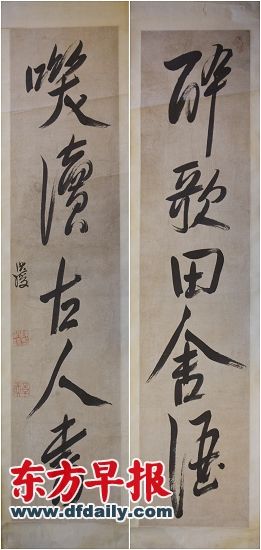 醉歌田舍酒
㗛讀古人書
洪綬
东方早报
www.dfdaily.com